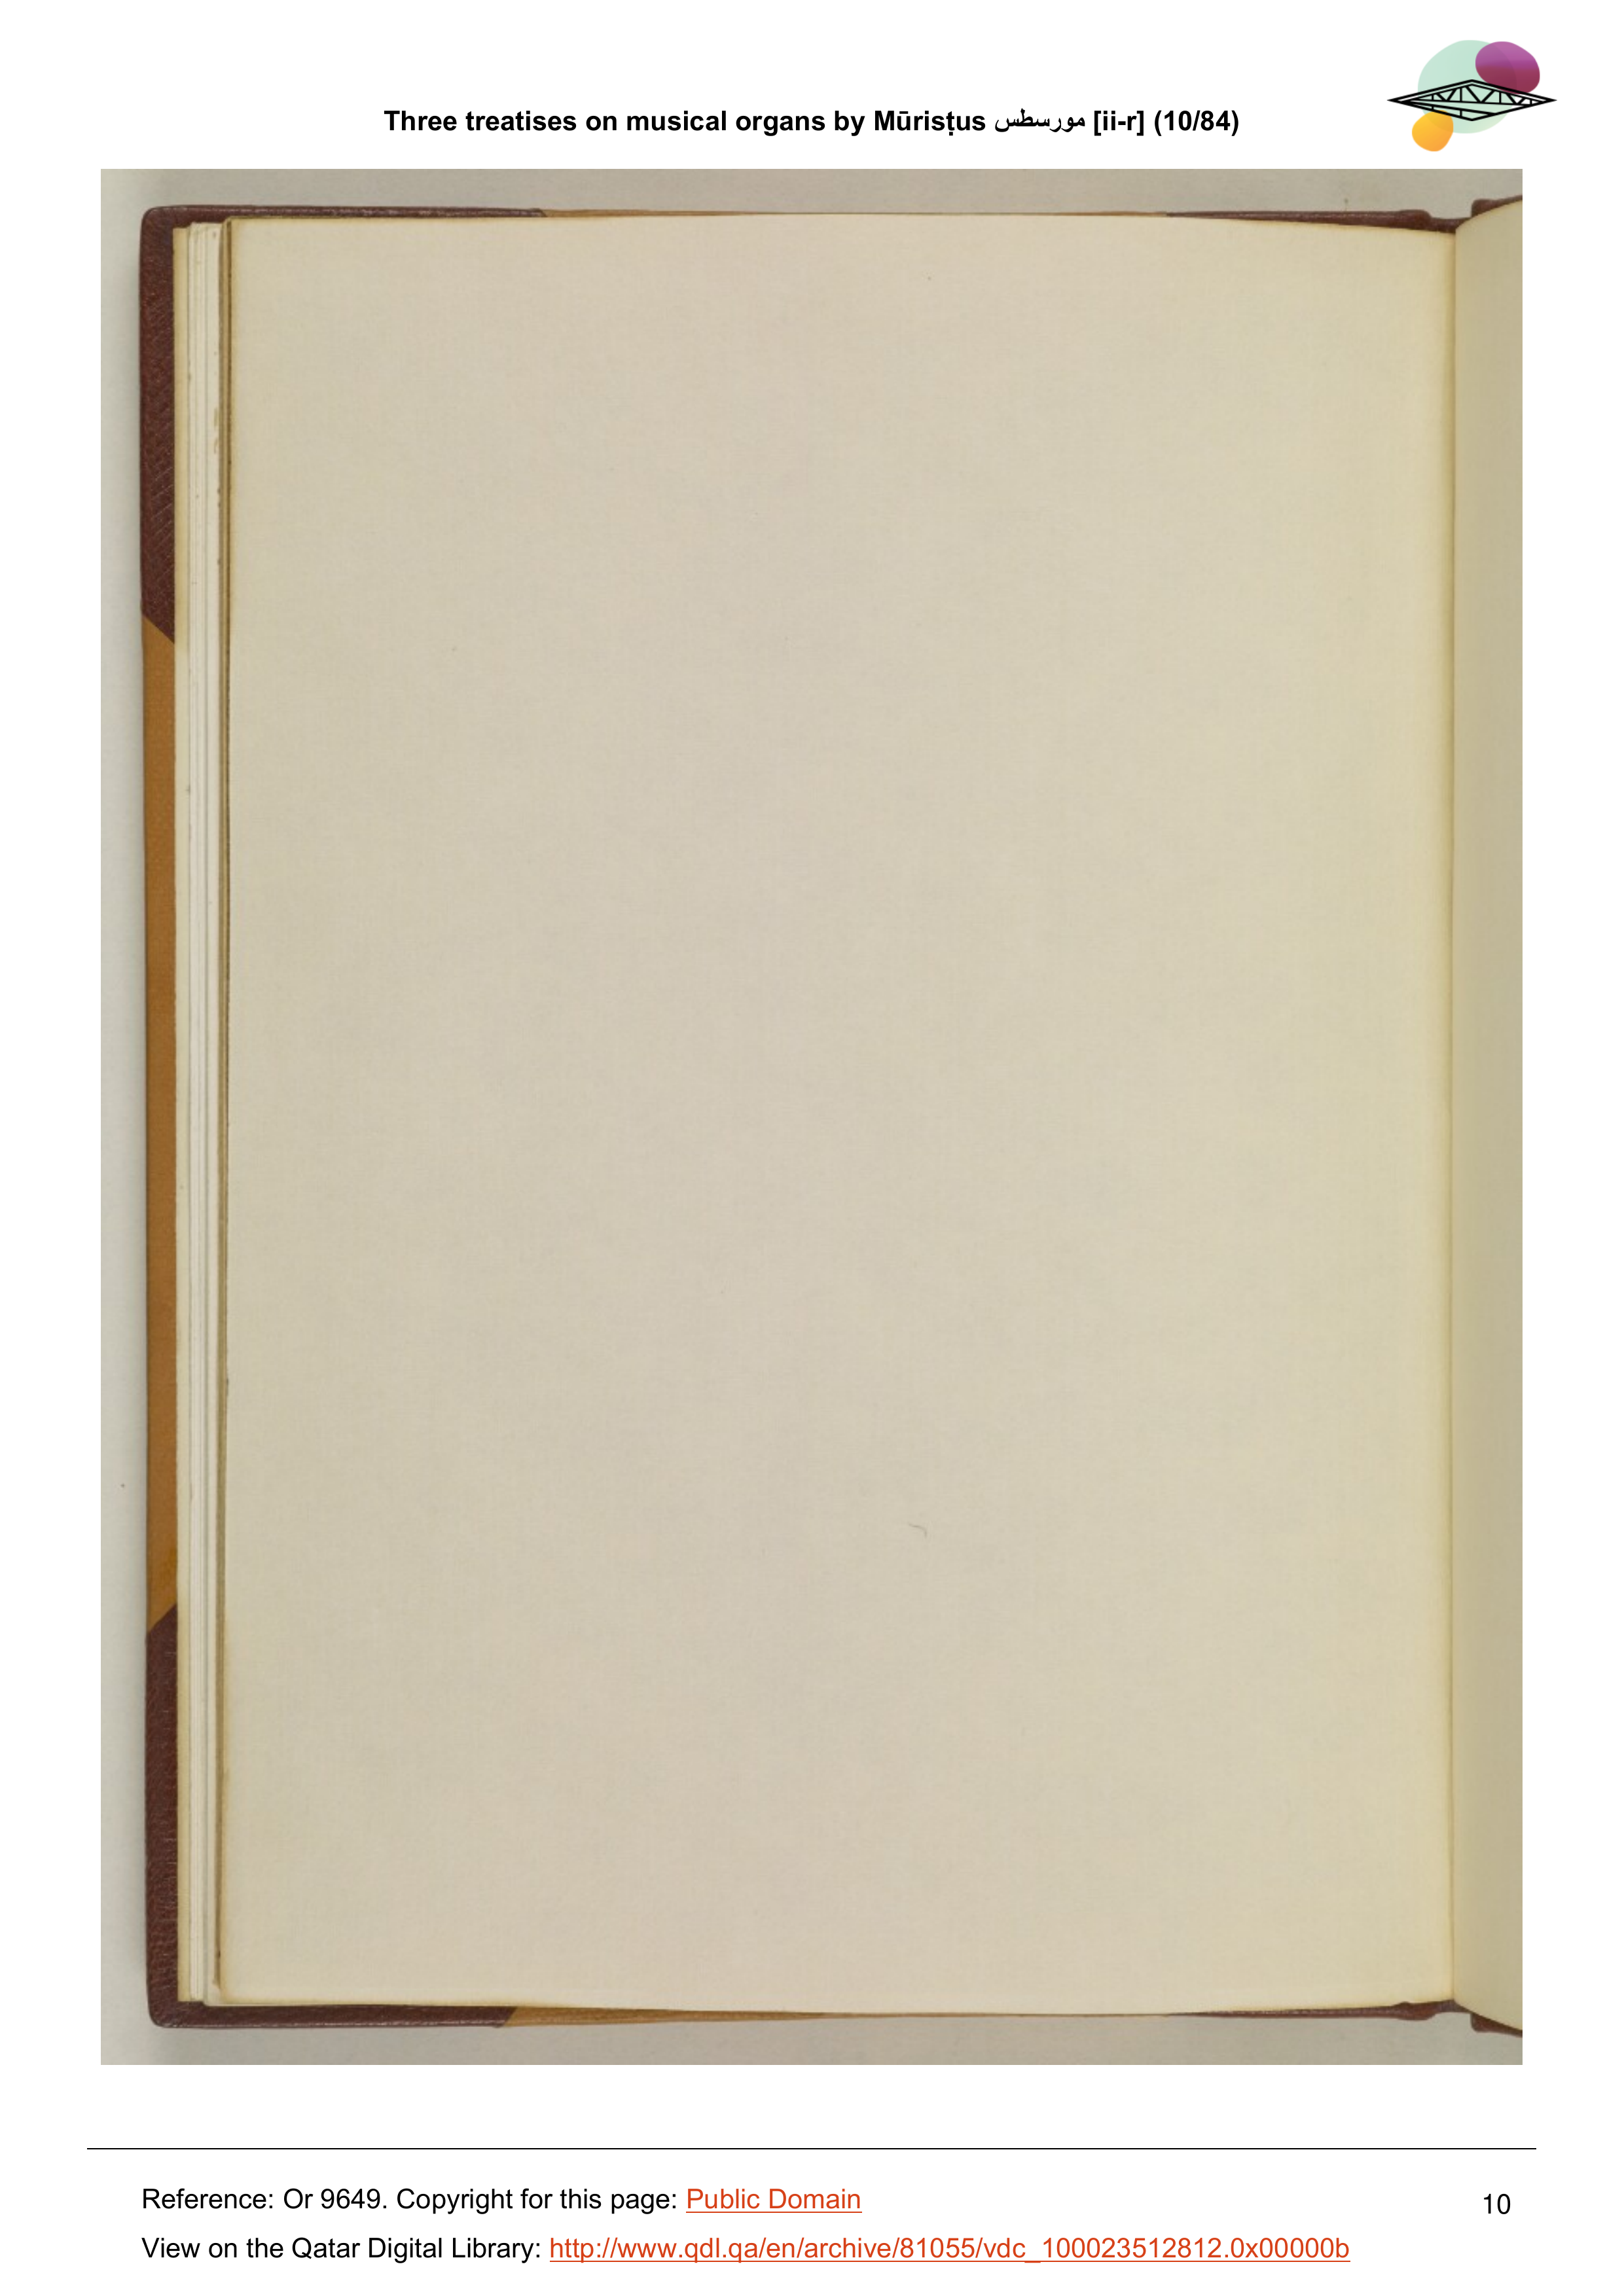 Three treatises on musical organs by Mūrisṭus مورسطس [ii-r] (10/84)
Reference: Or 9649. Copyright for this page: Public Domain
View on the Qatar Digital Library: http://www.qdl.qa/en/archive/81055/vdc_100023512812.0x00000b
10